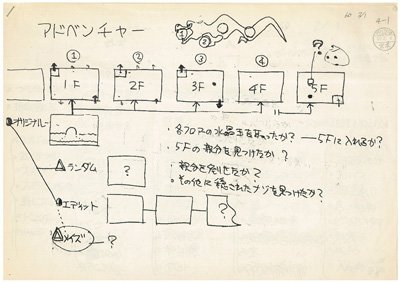 アドベンチャー
4-1
① ② ③ ④ ⑤
1F 2F 3F 4F 5F
?
オリジナル
・各フロアの水晶玉を取ったか? ── 5Fに入れるか?
・5Fの親分を見つけたか?
・親分を倒せたか?
・その他に隠されたナゾを見つけたか?
ランダム ?
エディット ?
メイズ ?